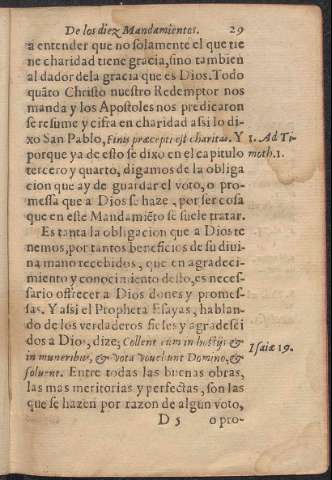 De los diez Mandamientos. 29
a entender que no solamente el que tie
ne charidad tiene gracia, sino tambien
al dador dela gracia que es Dios. Todo
quãto Christo nuestro Redemptor nos
manda y los Apostoles nos predicaron
se resume y cifra en charidad assi lo di-
xo San Pablo, Finis præcepti est charitas. Y
1. Ad Ti-
porque ya de esto se dixo en el capitulo
moth. 1.
tercero y quarto, digamos de la obliga
cion que ay de guardar el voto, o pro-
messa que a Dios se haze, por ser cosa
que en este Mandamiẽto se suele tratar.
Es tanta la obligacion que a Dios te
nemos, por tantos beneficios de su divi
na mano recebidos, que en agradeci-
miento y conocimiento desto, es neces-
sario offrecer a Dios dones y promes-
sas. Y assi el Propheta Esayas, hablan-
do de los verdaderos fieles y agradesci
dos a Dios, dize; Collent eum in hostijs &
Isaiæ 19.
in muneribus, & vota vouebunt Domino, &
soluent. Entre todas las buenas obras,
las mas meritorias y perfectas, son las
que se hazen por razon de algun voto,
D 5 o pro-